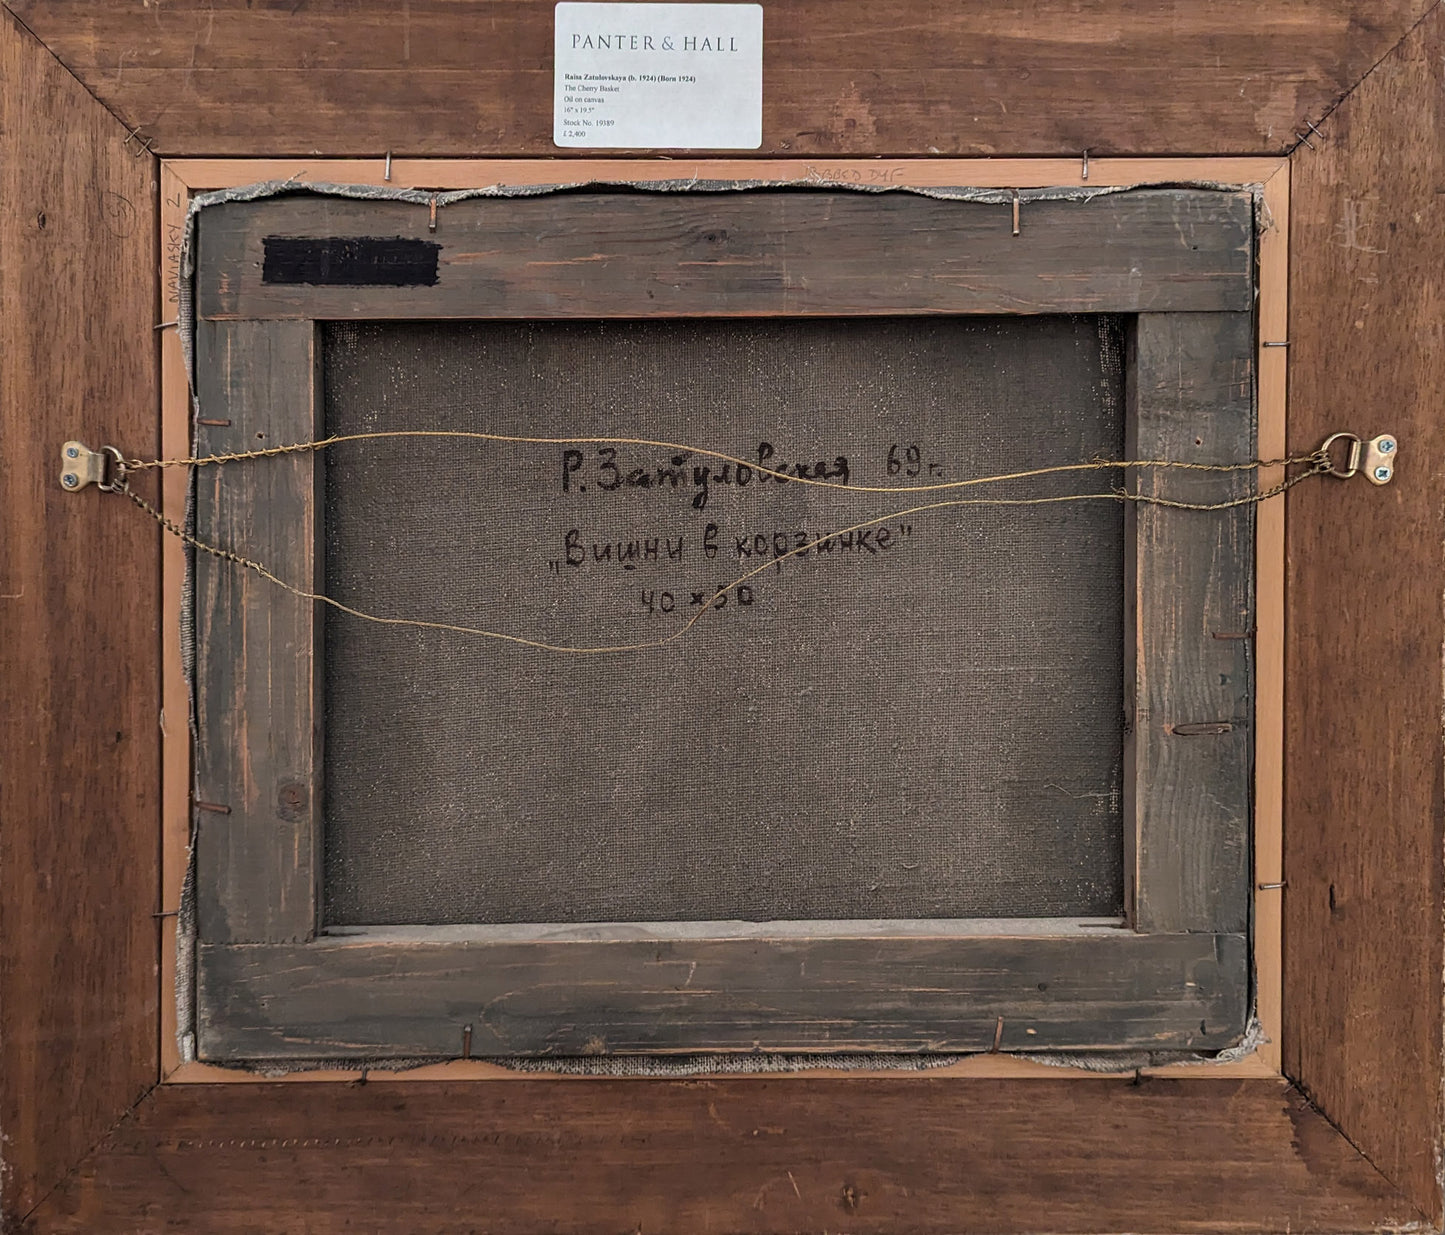 PANTER & HALL
Raisa Zatulovskaya (b. 1924) (Born 1924)
The Cherry Basket
Oil on canvas
16" x 19.5"
Stock No. 19389
£ 2,400
NAVIASKY 2
Р. Затуловская 69 г.
„Вишни в корзинке"
40 x 50